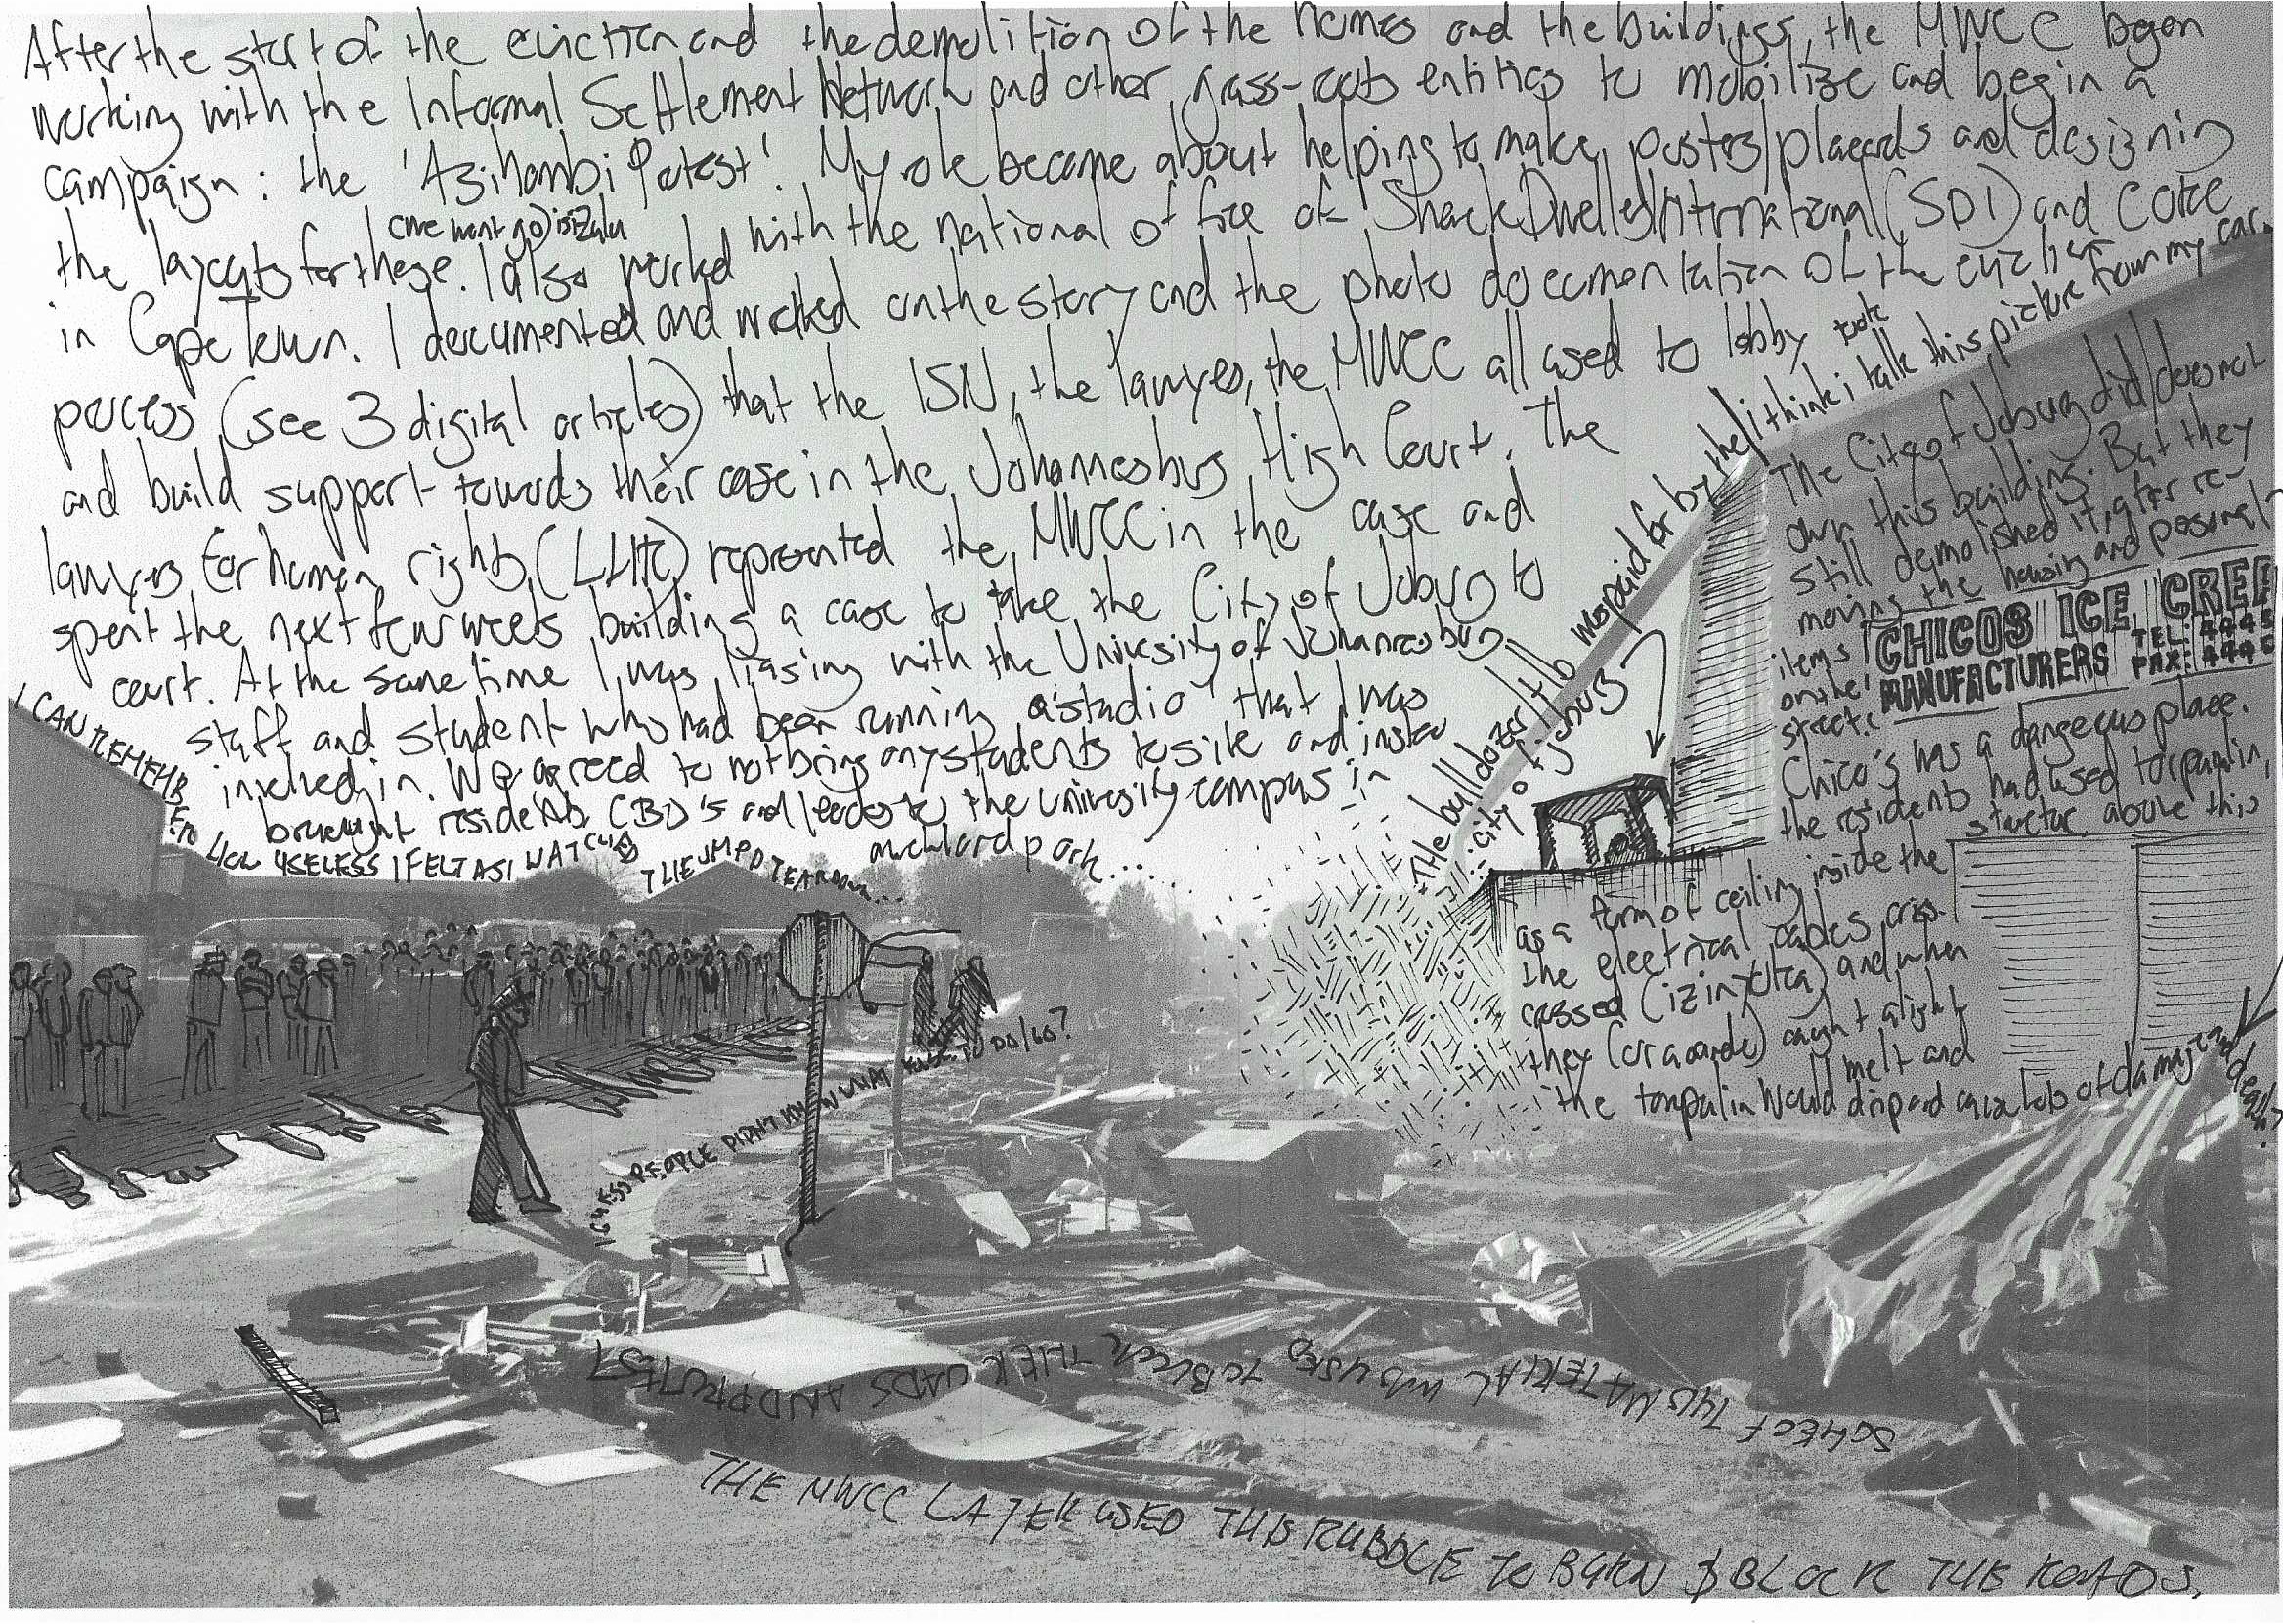 After the start of the eviction and the demolition of the homes and the buildings, the MWCC began
working with the Informal Settlement Network and other grass-roots entities to mobilize and begin a
campaign: the 'Azihambi Protest'. My role became about helping to make posters/placards and designing
the layouts for these. I also worked with the national office of Shack Dwellers International (SDI) and CORC
(we wont go) isiZulu
in Cape Town. I documented and worked on the story and the photo documentation of the eviction
process (see 3 digital articles) that the ISN, the lawyers, the MWCC all used to lobby
and build support towards their case in the Johannesburg High Court. The
lawyers for human rights (LHR) represented the MWCC in the case and
spent the next few weeks building a case to take the City of Joburg to
court. At the same time I was liasing with the University of Johannesburg
staff and student who had been running a 'studio' that I was
involved in. We agreed to not bring any students to site and instead
brought residents, CBO's and leaders to the university campus in
auckland park...
I CAN REMEMBER HOW USELESS I FELT AS I WATCHED THE JMPD TEARDOWN...
I think i talk this picture from my car.
took
The City of Joburg did/does not
own this building. But they
still demolished it, after re-
moving the housing and personal
items
on the
street.
CHICOS ICE CREE
MANUFACTURERS
TEL: 444
FAX: 444
Chico's was a dangerous place.
the residents had used tarpaulin,
structure above this
as a form of ceiling inside the
the electrical cables criss-
crossed (izinyoka) and when
they (or a candle) caught alight
the tarpaulin would melt and
drip and cause lots of damage and death.
the bulldozer that was paid for by the
city of joburg
I GUESS PEOPLE DIDN'T KNOW WHAT ELSE TO DO/GO?
SOME OF THIS MATERIAL WAS USED TO BLOCK THE ROADS AND PROTEST
THE MWCC LATER USED THIS RUBBLE TO BURN $ BLOCK THE ROADS.